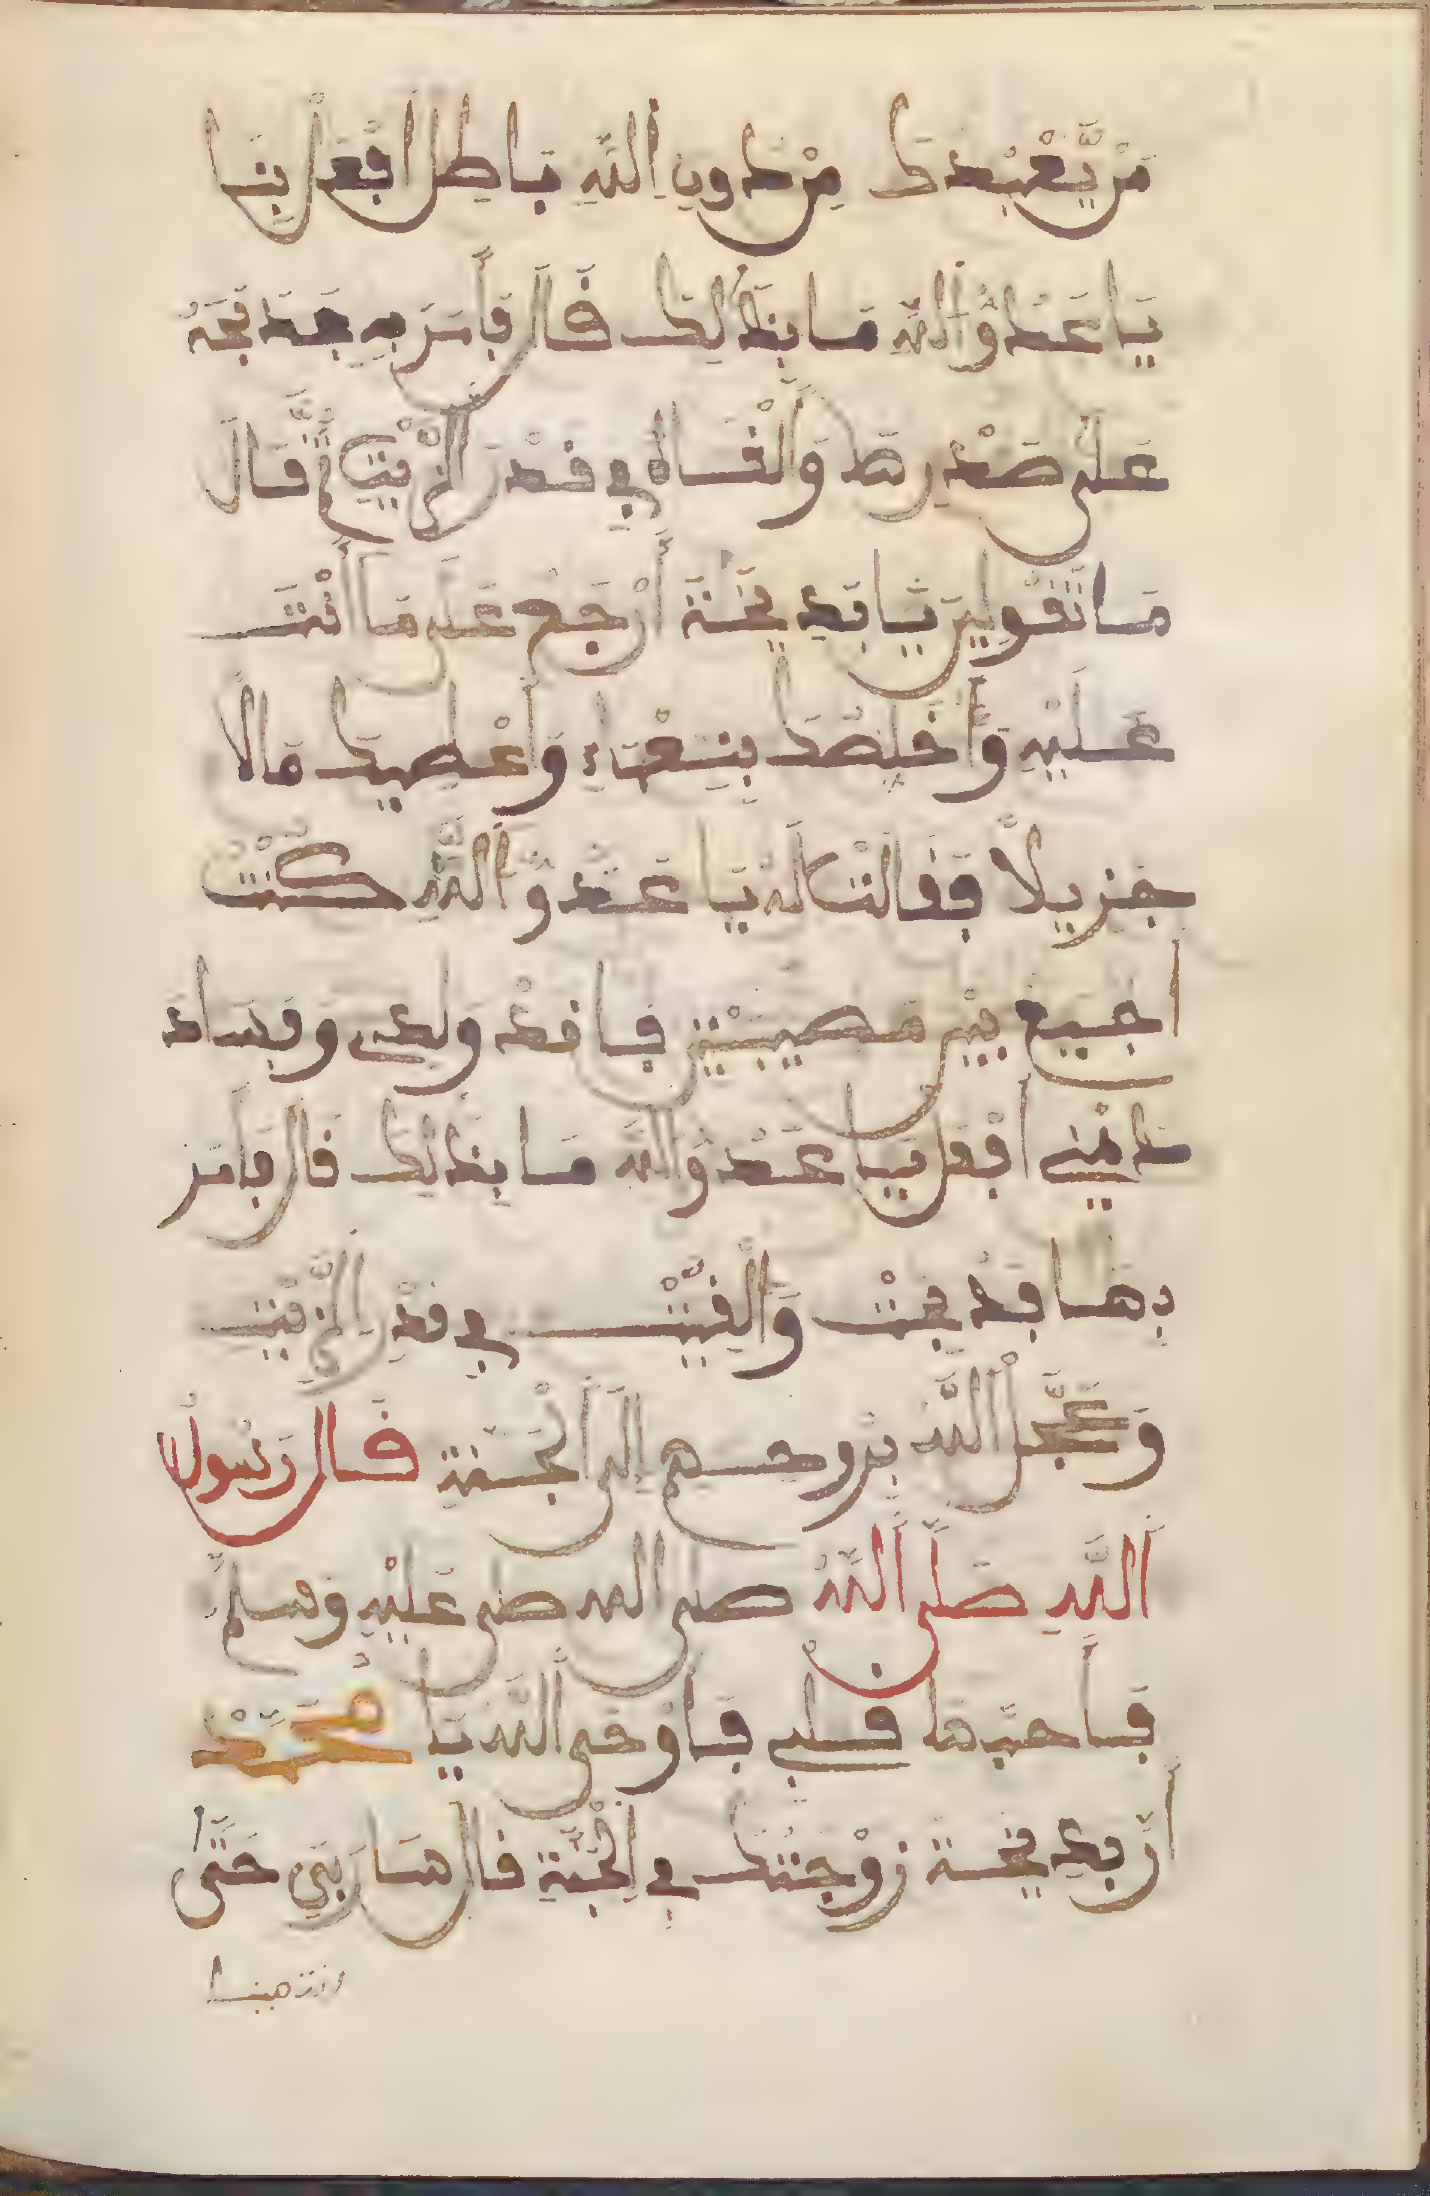 مَنْ يَّعْبُدُكَ مِنْ دُونِ اِللَّهِ بَاطِل اَفْعَلْ بِنَا
يَا عَدُوَّ اَللَّهِ مَا بَدَا لَكَ قَالَ فَأَمَرَ بِهِ
عَلَى صَدْرِكَ وَأَلْقَاهُ فِي قِدْرِ الزَّيْتِ ثُمَّ قَالَ
مَا تَقُولِينَ يَا بَدِيحَةَ أَرْجِعْ عَلَى مَا أَنْتَ
عَلَيْهِ وَأَخْلِصُكَ بِنِعْمَاءِ وَأُعْطِيكَ مَالًا
جَزِيلًا فَقَالَتْ لَهُ يَا عَدُوَّ اَللَّهِ كُنْتَ
اجْمَعْ بَيْنَ مُصِيبَتَيْنِ فَافْقِدْ وَلَدِي وَفَسَادَ
دِينِي اَفْعَلْ يَا عَدُوَّ اَللَّهِ مَا بَدَا لَكَ قَالَ فَأَمَرَ
بِهَا فَذُبِحَتْ وَأُلْقِيَتْ فِي قِدْرِ الزَّيْتِ
وَعَجَّلَ اَللَّهُ بِرُوحِهِمْ إِلَى اَلْجَنَّةِ قَالَ رَسُولُ
اَللَّهِ صَلَّى اَللَّهُ صلى الله صلى عَلَيْهِ وَسَلَّمَ
فَأَحَبَّهَا قَلْبِي فَأَوْحَى اَللَّهُ يَا مُحَمَّدُ
أَنَّ بَدِيحَةَ زَوْجَتُكَ فِي اِلْجَنَّةِ قَالَ هَا رَبِّي حَتَّى